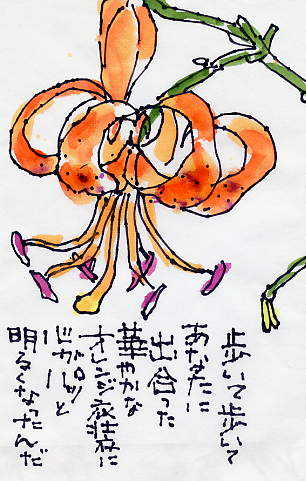 歩いて歩いて
あなたに
出合った
華やかな
オレンジ衣装に
心がパッと
明るくなったんだ